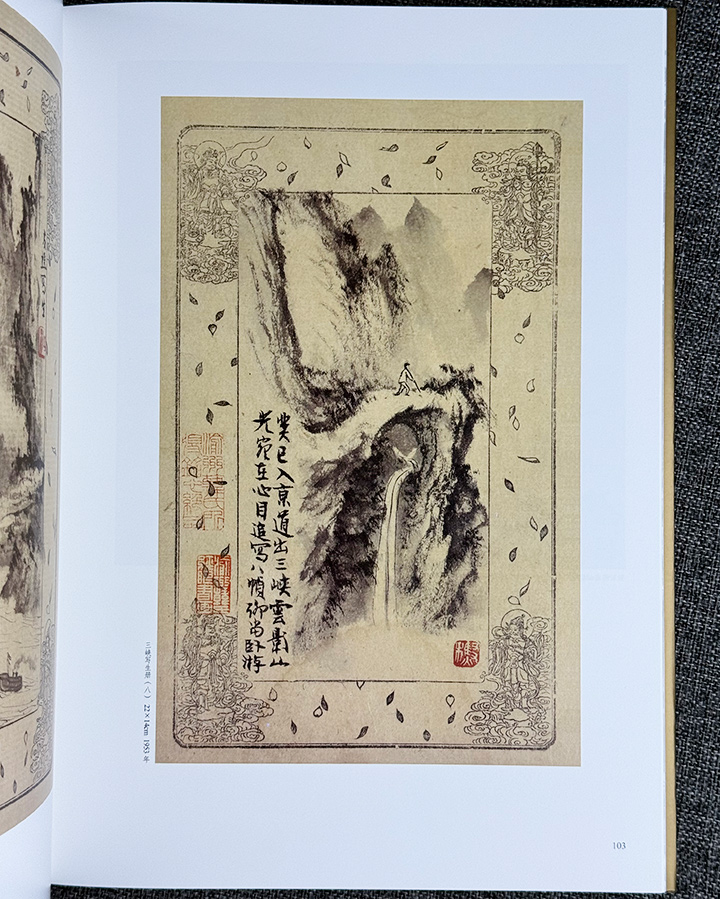 癸巳入京道出三峽雲影山
光宛在心目追寫八幀聊当卧游
三峡写生册（八） 22×14cm 1953 年
103